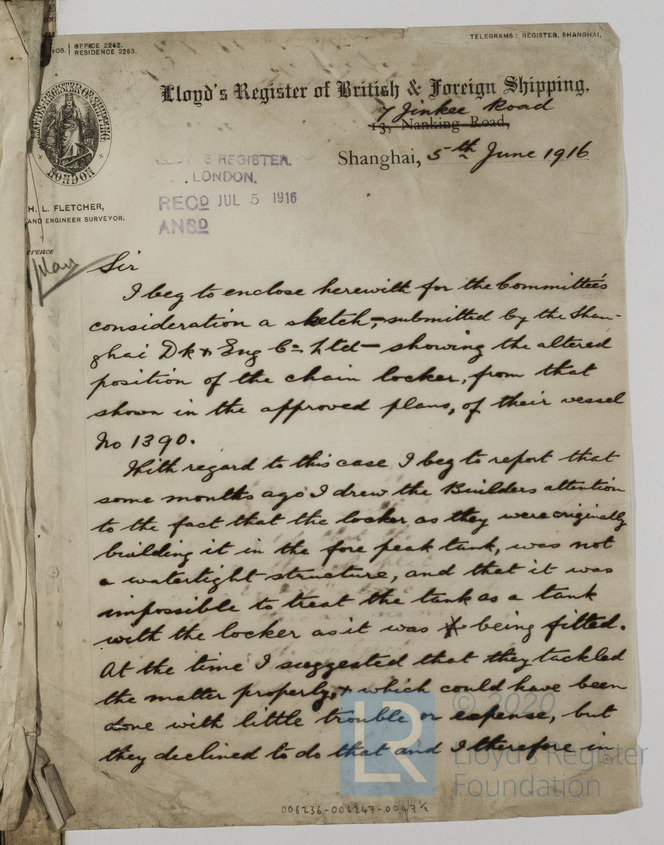 OFFICE 2262.
RESIDENCE 2263.
TELEGRAMS: REGISTER, SHANGHAI.
Lloyd's Register of British & Foreign Shipping.
7 Jinkee Road
13, Nanking Road,
Shanghai, 5th June 1916
LLOYD'S REGISTER.
LONDON.
RECD JUL 5 1916
ANSD
LONDON
H. L. FLETCHER,
AND ENGINEER SURVEYOR.
Sir
I beg to enclose herewith for the Committee's
consideration a sketch, submitted by the Shan-
ghai Dk & Eng Co Ltd - showing the altered
position of the chain locker, from that
shown in the approved plans, of their vessel
No 1390.
With regard to this case I beg to report that
some months ago I drew the Builders attention
to the fact that the locker as they were originally
building it in the fore peak tank, was not
a watertight structure, and that it was
impossible to treat the tank as a tank
with the locker as it was being fitted.
At the time I suggested that they tackled
the matter properly, & which could have been
done with little trouble or expense, but
they declined to do that and I therefore in
© 2020
LR
Lloyd's Register
Foundation
006236-006247-0047½